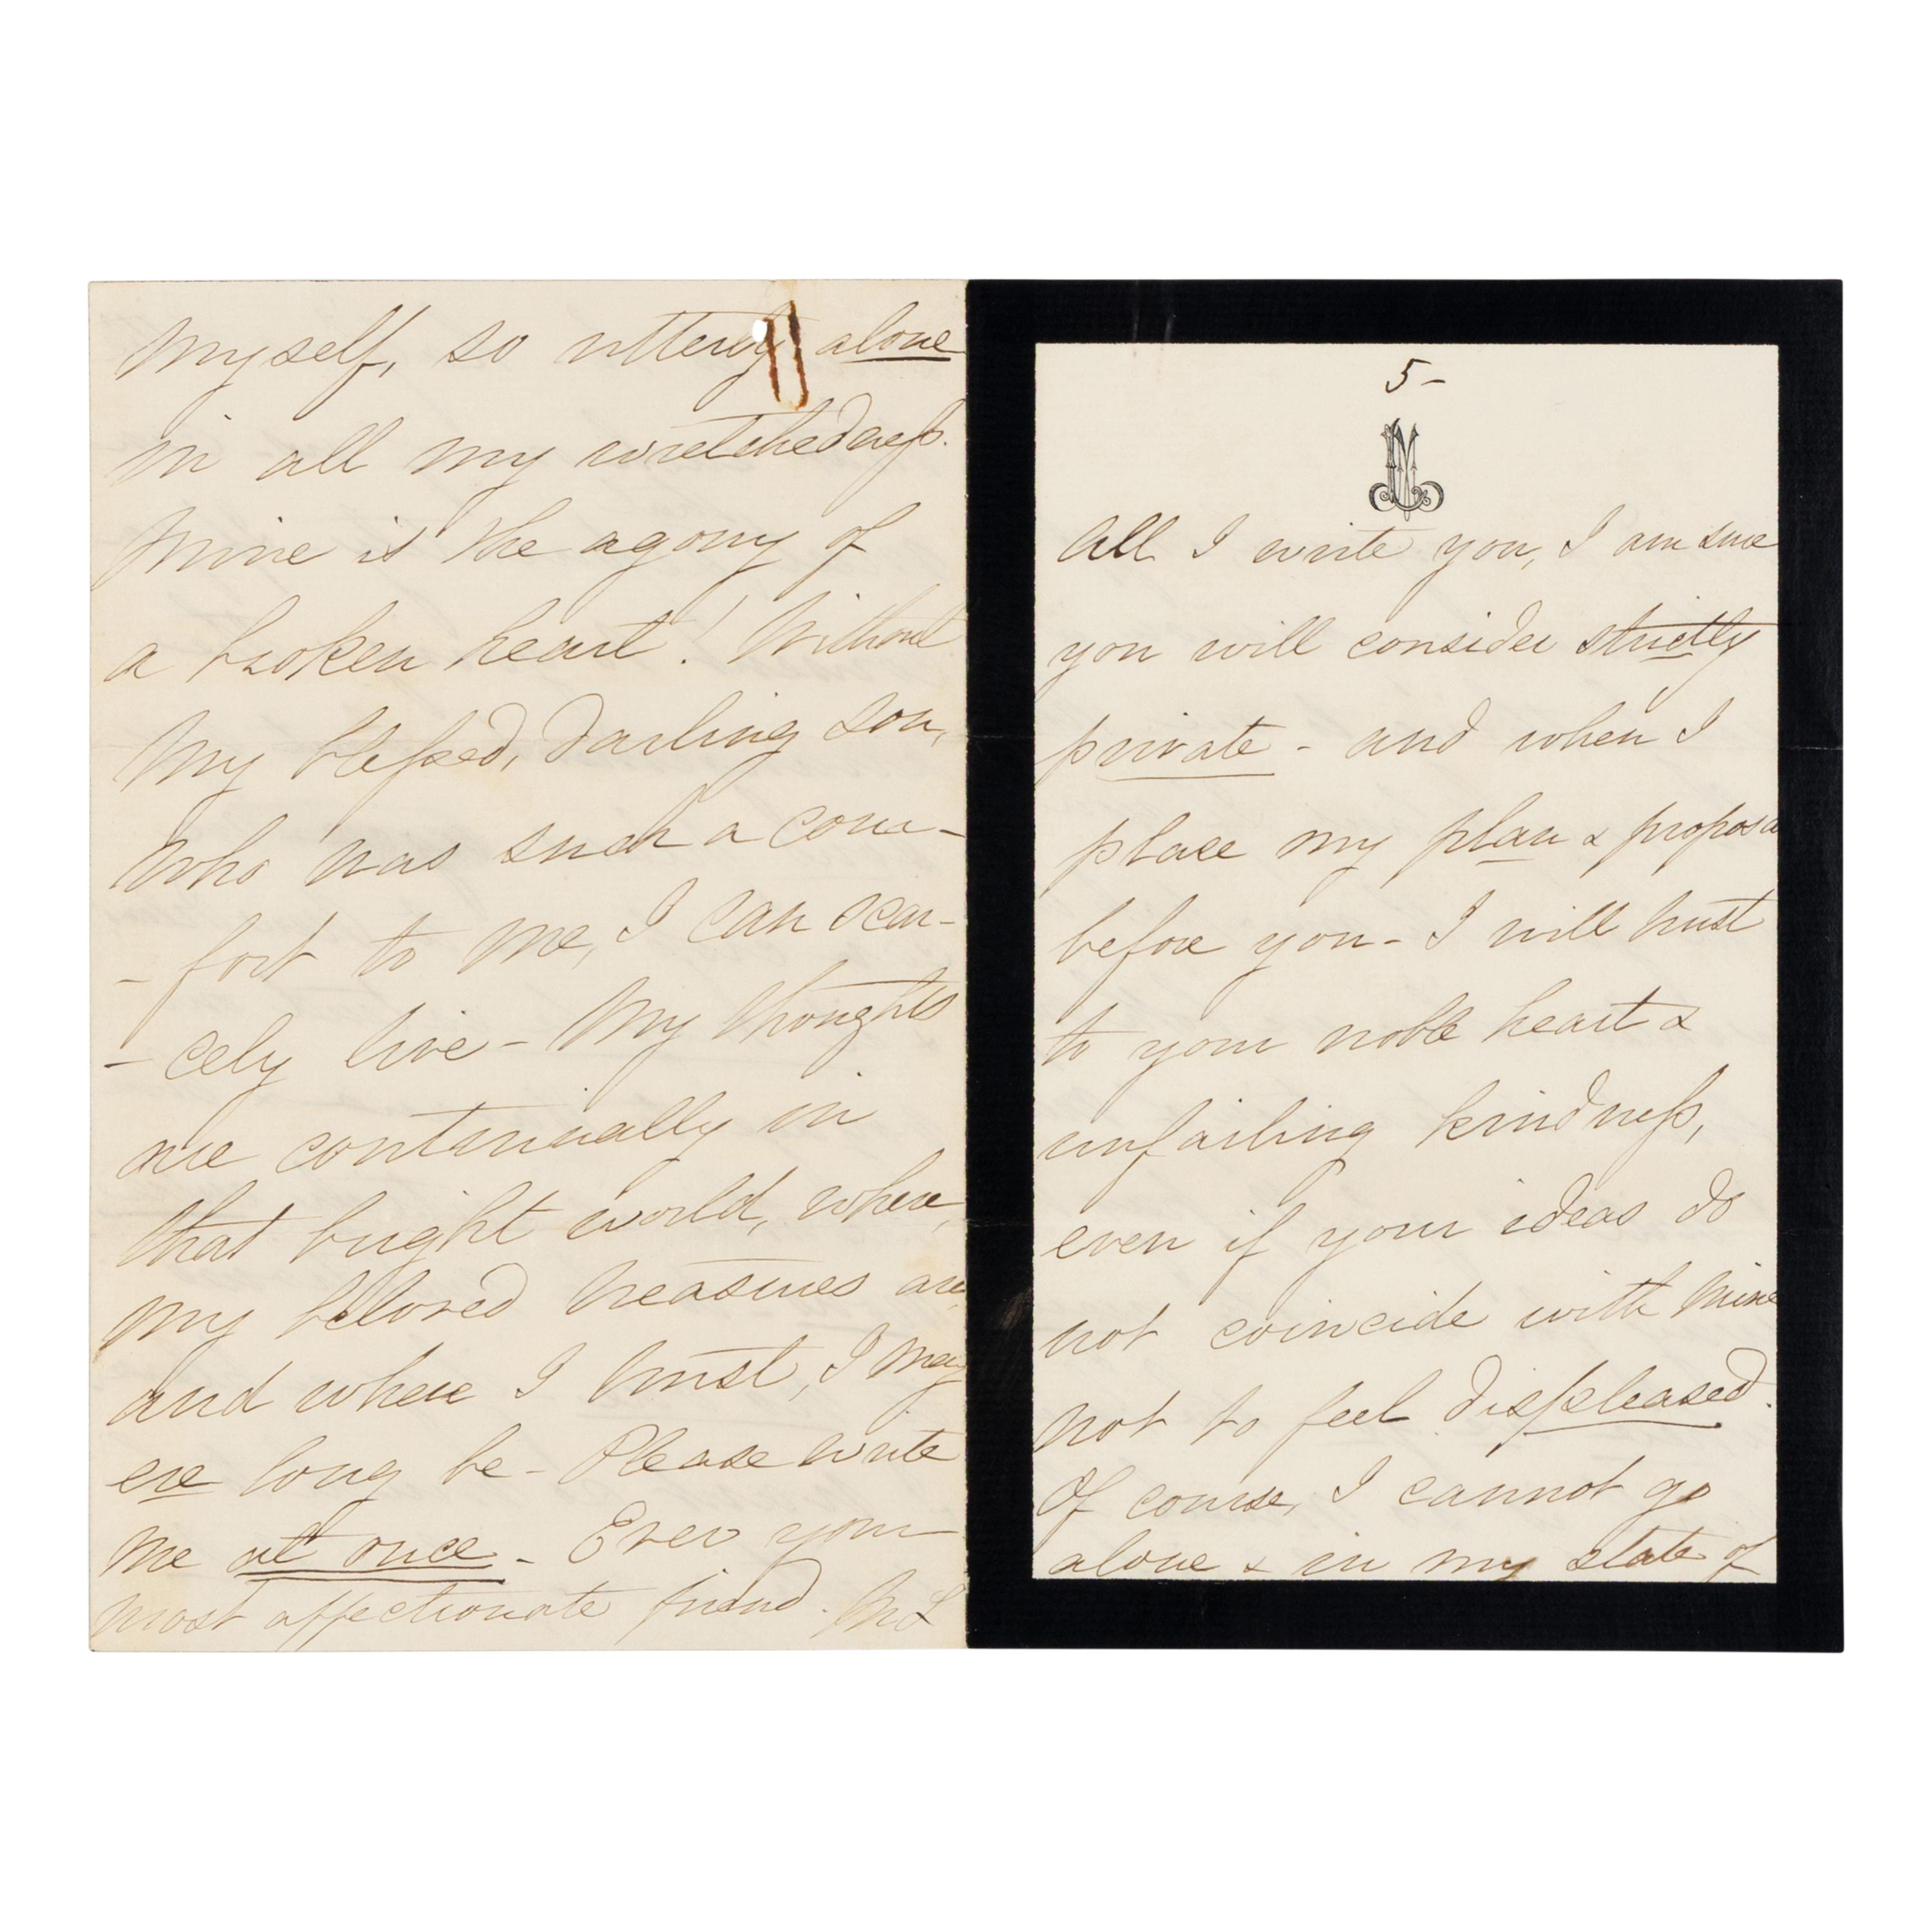 myself, so utterly alone
in all my wretchedness.
Mine is the agony of
a broken heart! Without
my blessed, darling son,
who was such a com-
-fort to me, I can scar-
-cely live - My thoughts
are continually in
that bright world, where,
my beloved treasures are,
and where I trust, I may
ere long be - Please write
me at once - Ever your
most affectionate friend. ML
5-
All I write you, I am sure
you will consider strictly
private - and when I
place my plan & proposa
before you - I will trust
to your noble heart &
unfailing kindness,
even if your ideas do
not coincide with mine
not to feel displeased.
Of course, I cannot go
alone & in my state of